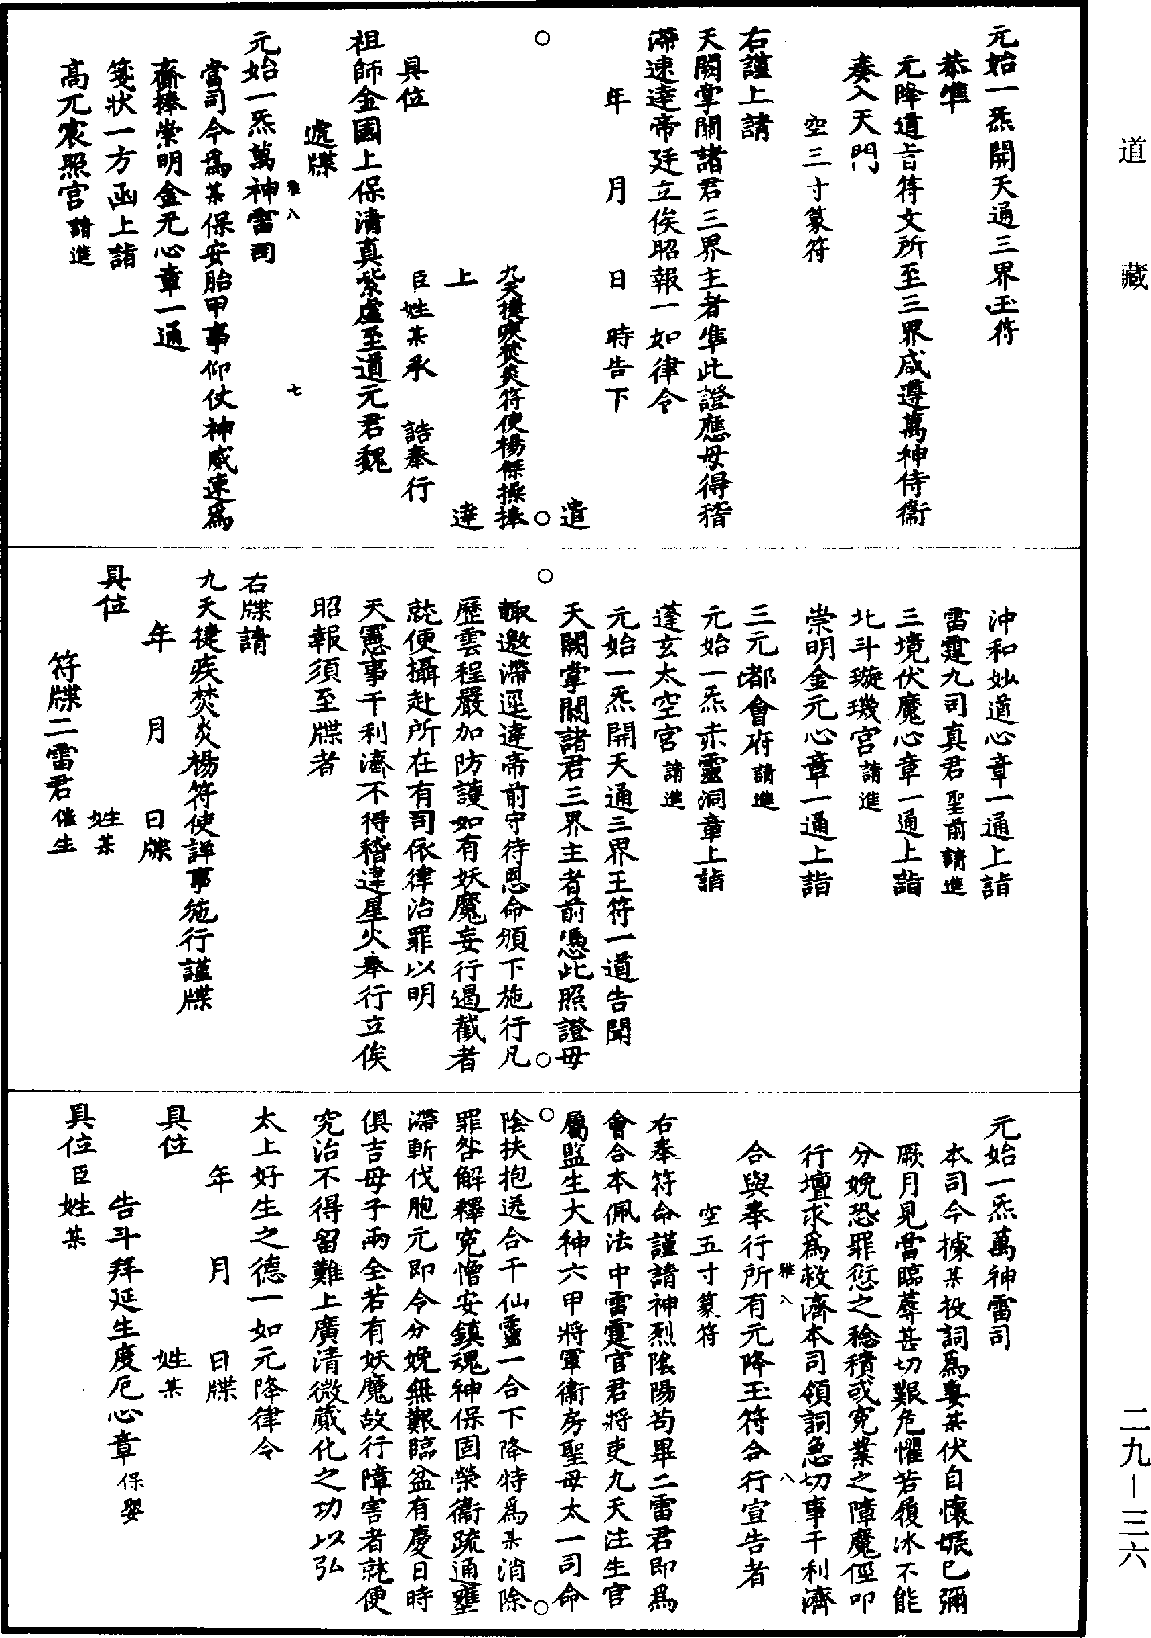 道藏
元始一炁開天通三界玉符
恭準
元降道旨符文所至三界咸遵萬神侍衛
奏入天門
空三寸篆符
右謹上請
天闕掌闕諸君三界主者準此證應毋得稽
滯速達帝廷立俟昭報一如律令
年　月　日　時告下
遣
九天捷疾焚炎符使楊傑操捧
上　達
臣姓某承　誥奉行
具位
祖師金闕上保清真紫虛至道元君魏
遞牒
元始一炁萬神雷司
雅八　七
當司今為某保安胎甲事仰仗神威速為
齎捧崇明金元心章一通
箋狀一方函上詣
高元宸照宮請進
沖和妙道心章一通上詣
雷霆九司真君聖前請進
三境伏魔心章一通上詣
北斗璇璣宮請進
崇明金元心章一通上詣
三元都會府請進
元始一炁赤靈洞章上詣
蓬玄太空宮請進
元始一炁開天通三界玉符一道告聞
天闕掌闕諸君三界主者前憑此照證毋
輒邀滯逕達帝前守待恩命頒下施行凡
歷雲程嚴加防護如有妖魔妄行遏截者
就便攝赴所在有司依律治罪以明
天憲事干利濟不得稽違星火奉行立俟
昭報須至牒者
右牒請
九天捷疾焚炎楊符使詳事施行謹牒
年　月　日牒
具位　姓某
符牒二雷君催生
元始一炁萬神雷司
本司今據某投詞為妻某伏自懷娠已彌
厥月見當臨蓐甚切艱危懼若履冰不能
分娩恐罪愆之稔積或冤業之障魔俓叩
行壇求為救濟本司領詞急切事干利濟
合與奉行所有元降玉符合行宣告者
雅八　八
空五寸篆符
右奉符命謹請神烈陰陽苟畢二雷君即為
會合本佩法中雷霆官君將吏九天注生官
屬監生大神六甲將軍衛房聖母太一司命
陰扶抱送合千仙靈一合下降特為某消除
罪咎解釋冤憎安鎮魂神保固榮衛疏通壅
滯斬伐胞元即令分娩無艱臨盆有慶日時
俱吉母子兩全若有妖魔故行障害者就便
究治不得留難上廣清微蕆化之功以弘
太上好生之德一如元降律令
年　月　日牒
具位　姓某
告斗拜延生度厄心章保嬰
具位臣姓某
二九—三六